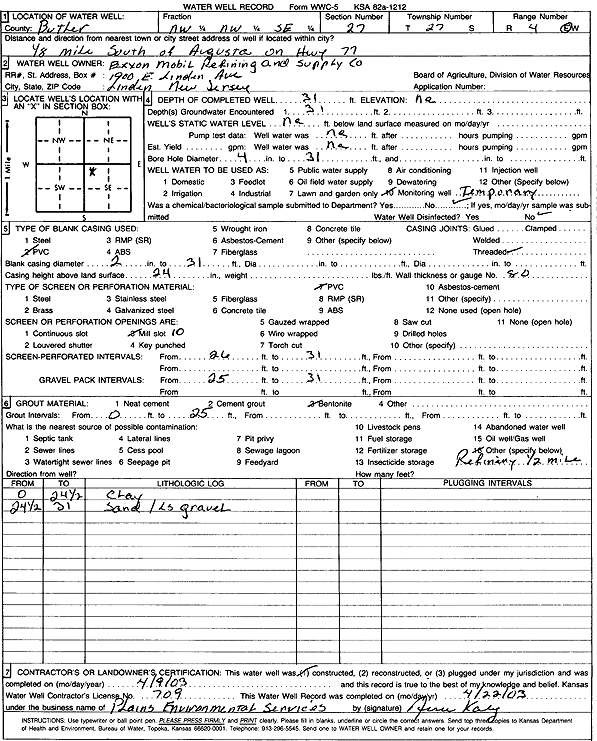 WATER WELL RECORD Form WWC-5 KSA 82a-1212
1 LOCATION OF WATER WELL: Fraction Section Number Township Number Range Number
County: Butler NW ¼ NW ¼ SE ¼ 27 T 27 S R 4 E/W
Distance and direction from nearest town or city street address of well if located within city?
1/8 mile South of Augusta on Hwy 77
2 WATER WELL OWNER: Exxon Mobil Refining and Supply Co
RR#, St. Address, Box # : 1900 E Linden Ave Board of Agriculture, Division of Water Resources
City, State, ZIP Code : Linden New Jersey Application Number:
3 LOCATE WELL'S LOCATION WITH AN "X" IN SECTION BOX:
N
NW NE
W E
X
SW SE
S
1 Mile
4 DEPTH OF COMPLETED WELL 31 ft. ELEVATION: na
Depth(s) Groundwater Encountered 1. 31 ft. 2. ft. 3. ft.
WELL'S STATIC WATER LEVEL na ft. below land surface measured on mo/day/yr
Pump test data: Well water was na ft. after hours pumping gpm
Est. Yield gpm: Well water was na ft. after hours pumping gpm
Bore Hole Diameter 4 in. to 31 ft., and in. to ft.
WELL WATER TO BE USED AS: 5 Public water supply 8 Air conditioning 11 Injection well
1 Domestic 3 Feedlot 6 Oil field water supply 9 Dewatering 12 Other (Specify below)
2 Irrigation 4 Industrial 7 Lawn and garden only 10 Monitoring well Temporary
Was a chemical/bacteriological sample submitted to Department? Yes No ✓; If yes, mo/day/yr sample was submitted
Water Well Disinfected? Yes No ✓
5 TYPE OF BLANK CASING USED: 5 Wrought iron 8 Concrete tile CASING JOINTS: Glued Clamped
1 Steel 3 RMP (SR) 6 Asbestos-Cement 9 Other (specify below) Welded
2 PVC 4 ABS 7 Fiberglass Threaded ✓
Blank casing diameter 2 in. to 31 ft., Dia in. to ft., Dia in. to ft.
Casing height above land surface 24 in., weight lbs./ft. Wall thickness or gauge No. 80
TYPE OF SCREEN OR PERFORATION MATERIAL: 7 PVC 10 Asbestos-cement
1 Steel 3 Stainless steel 5 Fiberglass 8 RMP (SR) 11 Other (specify)
2 Brass 4 Galvanized steel 6 Concrete tile 9 ABS 12 None used (open hole)
SCREEN OR PERFORATION OPENINGS ARE: 5 Gauzed wrapped 8 Saw cut 11 None (open hole)
1 Continuous slot 3 Mill slot 10 6 Wire wrapped 9 Drilled holes
2 Louvered shutter 4 Key punched 7 Torch cut 10 Other (specify)
SCREEN-PERFORATED INTERVALS: From 26 ft. to 31 ft., From ft. to ft.
From ft. to ft., From ft. to ft.
GRAVEL PACK INTERVALS: From 25 ft. to 31 ft., From ft. to ft.
From ft. to ft., From ft. to ft.
6 GROUT MATERIAL: 1 Neat cement 2 Cement grout 3 Bentonite 4 Other
Grout Intervals: From 0 ft. to 25 ft., From ft. to ft., From ft. to ft.
What is the nearest source of possible contamination: 10 Livestock pens 14 Abandoned water well
1 Septic tank 4 Lateral lines 7 Pit privy 11 Fuel storage 15 Oil well/Gas well
2 Sewer lines 5 Cess pool 8 Sewage lagoon 12 Fertilizer storage 16 Other (specify below)
3 Watertight sewer lines 6 Seepage pit 9 Feedyard 13 Insecticide storage Refinery 1/2 mile
Direction from well? How many feet?
FROM TO LITHOLOGIC LOG FROM TO PLUGGING INTERVALS
0 24 1/2 Clay
24 1/2 31 Sand / Ls gravel
7 CONTRACTOR'S OR LANDOWNER'S CERTIFICATION: This water well was (1) constructed, (2) reconstructed, or (3) plugged under my jurisdiction and was
completed on (mo/day/year) 4/9/03 and this record is true to the best of my knowledge and belief. Kansas
Water Well Contractor's License No. 709 This Water Well Record was completed on (mo/day/yr) 4/22/03
under the business name of Plains Environmental Services by (signature)
INSTRUCTIONS: Use typewriter or ball point pen. PLEASE PRESS FIRMLY and PRINT clearly. Please fill in blanks, underline or circle the correct answers. Send top three copies to Kansas Department
of Health and Environment, Bureau of Water, Topeka, Kansas 66620-0001. Telephone: 913-296-5545. Send one to WATER WELL OWNER and retain one for your records.